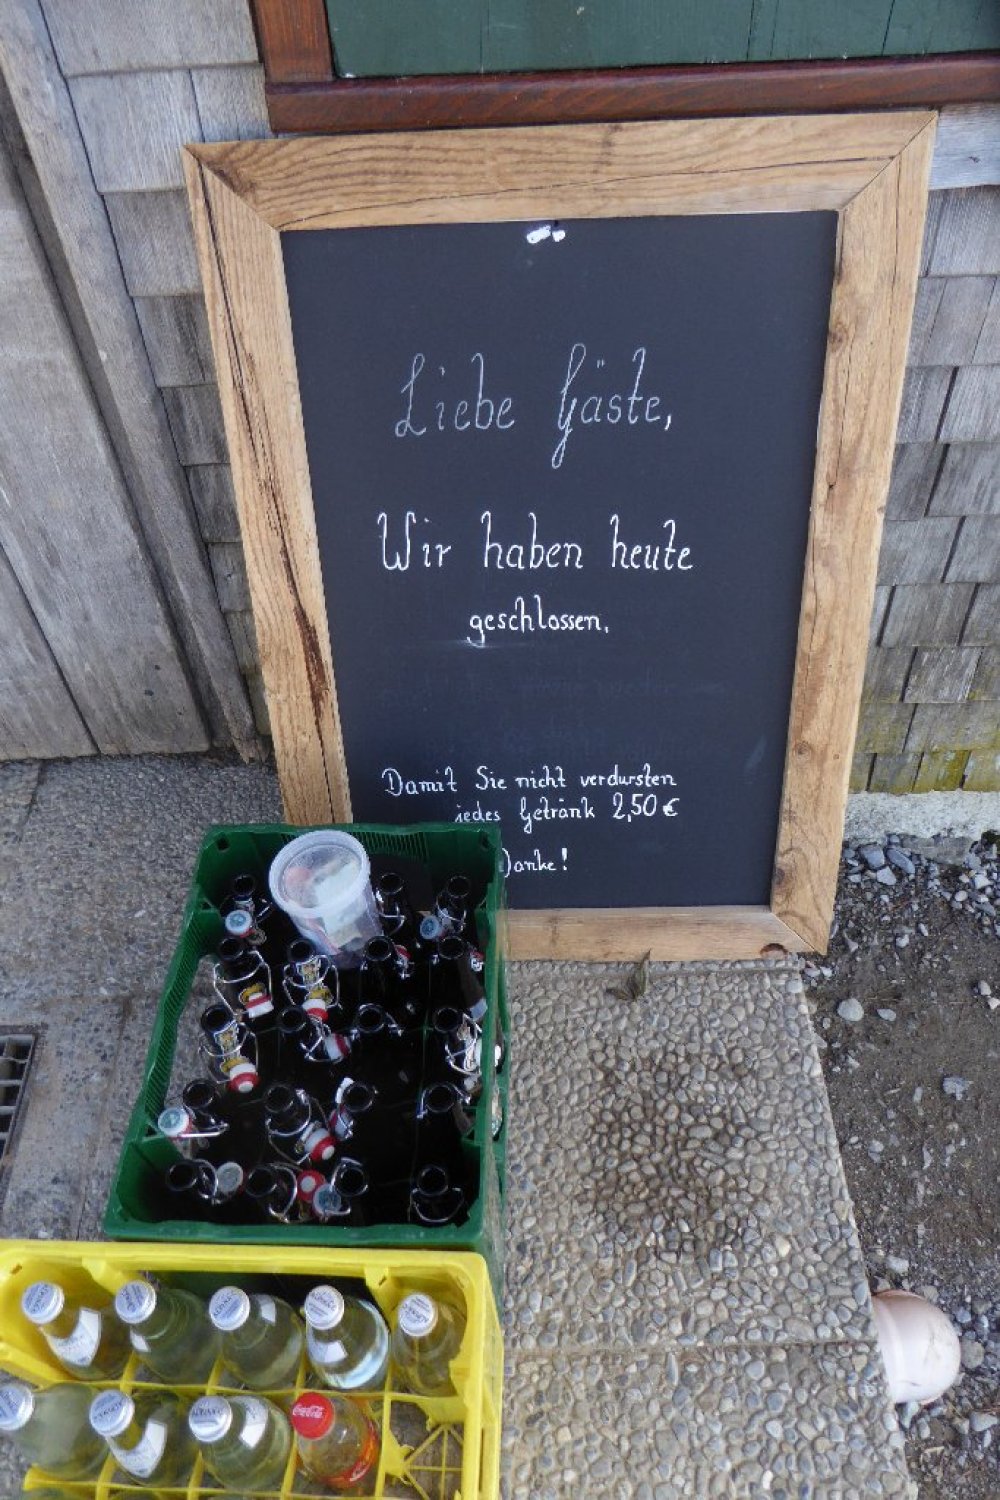 Liebe Gäste,
Wir haben heute
geschlossen.
Damit Sie nicht verdursten
jedes Getränk 2,50 €
Danke!
Coca-Cola